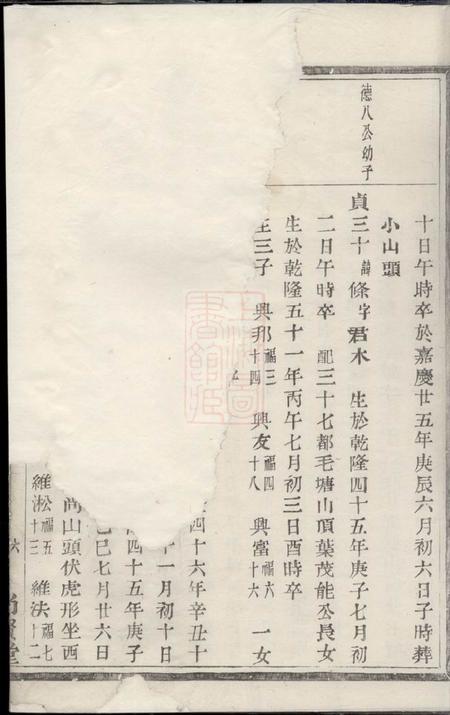 十日午時卒於嘉慶廿五年庚辰六月初六日子時葬
小山頭
德八公幼子
貞三十諱條字君木 生於乾隆四十五年庚子七月初
二日午時卒 配三十七都毛塘山頂葉茂能公長女
生於乾隆五十一年丙午七月初三日酉時卒
生三子 興邦福三十四 興友福四十八 興富福六十六 一女
四十六年辛丑十
十一月初十日
四十五年庚子
己巳七月廿六日
山頭伏虎形坐西
維淞福五十三 維法福七十二
六
尚賢堂